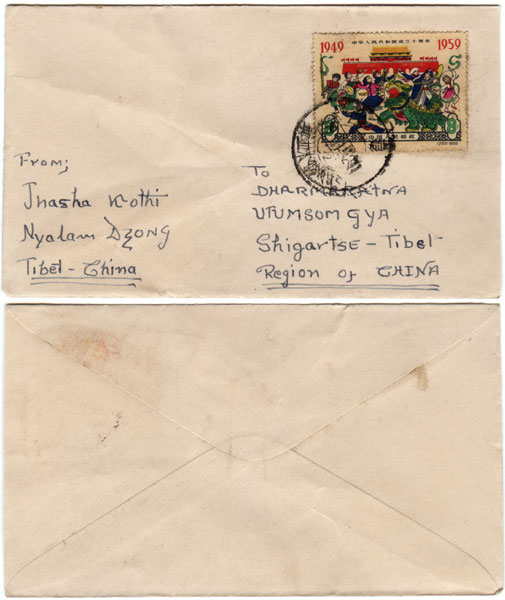 1949 1959
中华人民共和国成立十周年
8
中国人民邮政
From;
Jhasha Kothi
Nyalam DZong
Tibet - China
To
DHARMARATNA
UTUMSOM GYA
Shigartse - Tibet
Region of CHINA